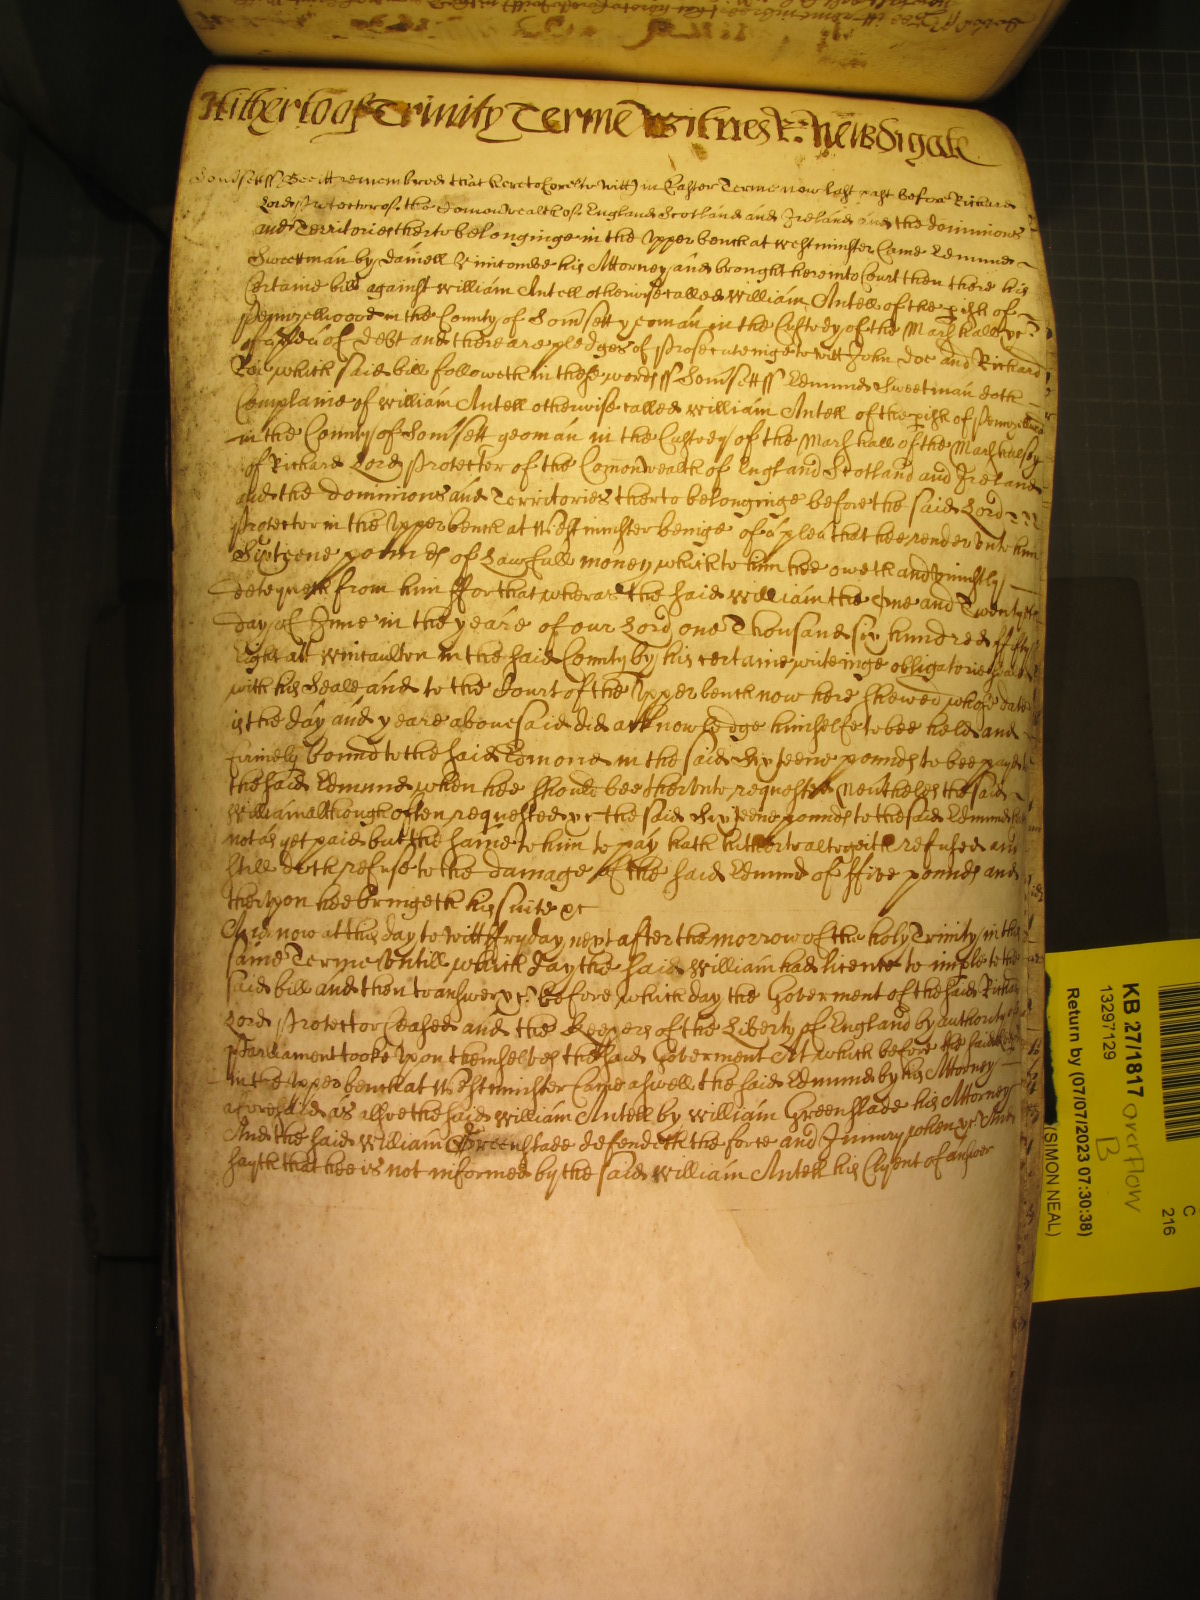 Hitherto of Trinity Terme Witnes R: Newdigate
Som̃sett ss Bee itt remembred that heretofore to witt in Easter Terme now last past before Richard
Lord Protector of the Com̃onwealth of England Scotland and Ireland and the dominions
and Territories therto belonginge in the Upper bench at Westminster Came Edmund
Sweetman by Daniell Vinicombe his Attorney and brought here into Court then there his
Certaine bill against William Antell otherwise called William Antell of the pish of
in the County of Som̃sett yeoman in the Custody of the Marshall &c
of a plea of Debt and there are pledges of Prosecuteinge to witt John Doe and Richard
Roe which said bill followeth in these words ss Som̃sett ss Edmund Sweetman doth
Complaine of William Antell otherwise called William Antell of the pish of
in the County of Som̃sett yeoman in the Custody of the Marshall of the Marshalsey
of Richard Lord Protector of the Com̃onwealth of England Scotland and Ireland
and the dominions and Territories therto belonginge before the said Lord
Protector in the Upper bench at Westminster beinge of a plea that hee render unto him
Sixteene pounds of Lawfull money which to him hee oweth and uniustly
deteyneth from him ffor that wheras the said William the One and Twentyth
day of June in the yeare of our Lord one Thousand six hundred fifty
Eight att Wincaulton in the said County by his certaine writeinge obligatorie sealed
with his Seale and to the Court of the Upper bench now here shewed whose date
is the day and yeare abovesaid did acknowledge himselfe to bee held and
firmely bound to the said Edmond in the said Sixteene pounds to bee payd
the said Edmund when hee should bee therunto requested Neũtheles the said
William although often requested &c the said Sixteene pounds to the said Edmund
not as yet paid but the same to him to pay hath hitherto altogeith refused and
still doth refuse to the damage of the said Edmund of ffive pounds and
therupon hee bringeth his suite &c
And now at this day to witt ffryday next after the morrow of the holy Trinity in this
same Terme Untill which day the said William had licence to imple to the
said bill and then to answer &c Before which day the Goverment of the said Richard
Lord Protector Ceased and the Keepers of the Liberty of England by authority of
Parliament tooke upon themselves the said Goverment At which before the said
in the Upper bench at Westminster Came aswell the said Edmund by his Attorney
aforesaid as alsoe the said William Antell by William Greenslade his Attorney
And the said William Greenslade defendeth the force and Iniury when &c And
sayth that hee is not informed by the said William Antell his Clyent of answer
KB 27/1817 overflow
B
13297129
Return by (07/07/2023 07:30:38)
(SIMON NEAL)
C
216